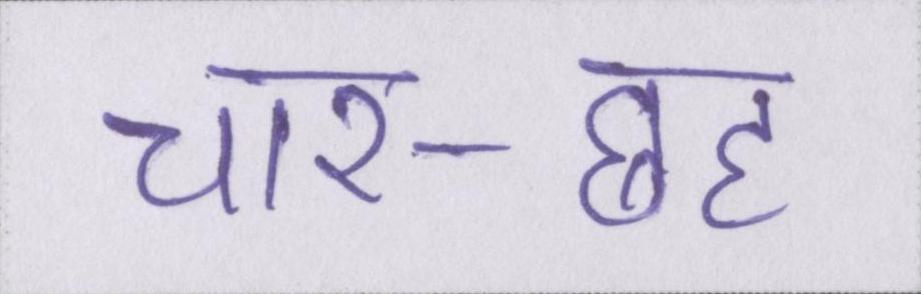 चार-छह